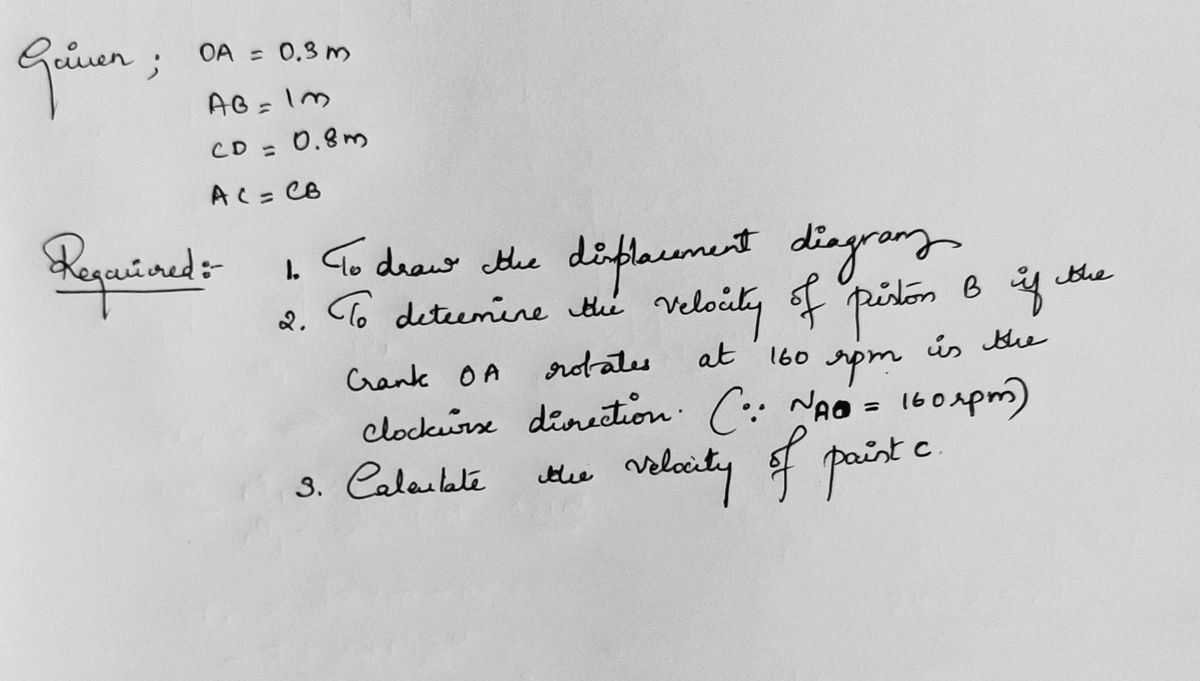 Given ; OA = 0.3 m
AB = 1 m
CD = 0.8 m
AC = CB
Required :- 1. To draw the displacement diagram
2. To determine the velocity of piston B if the
Crank OA rotates at 160 rpm in the
clockwise direction. (∵ NAO = 160 rpm)
3. Calculate the velocity of point C.